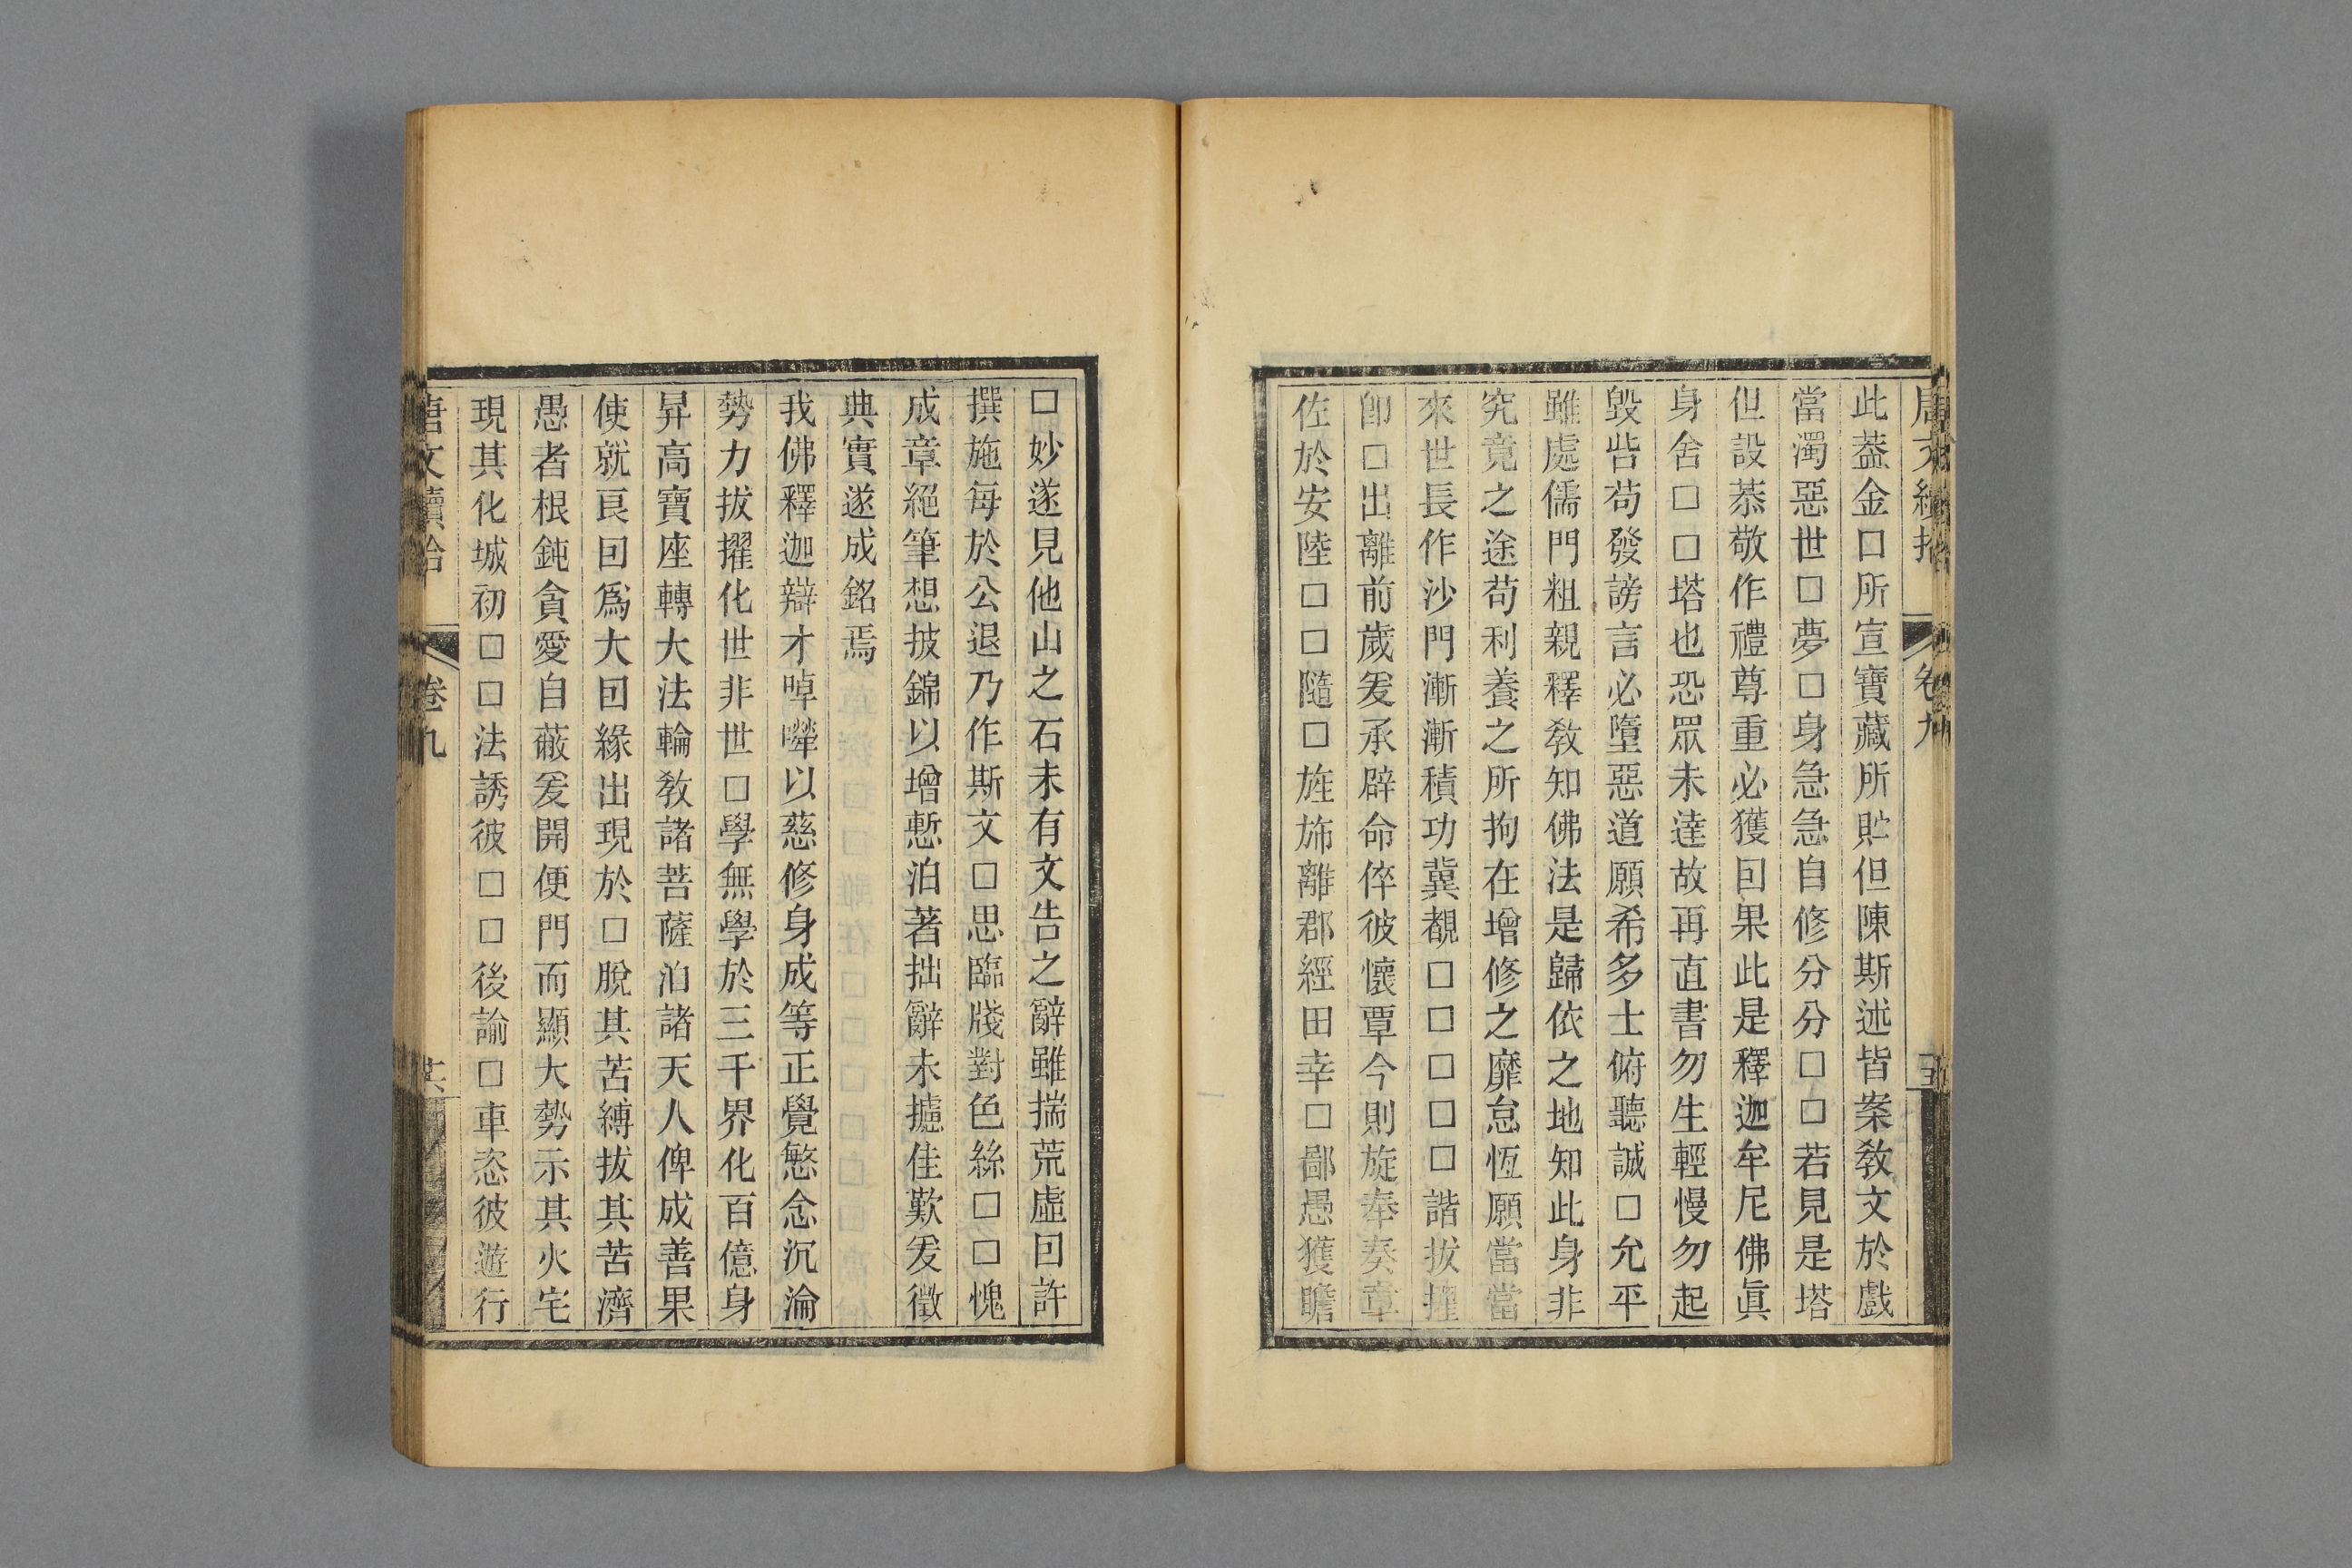 此葢金口所宣寶藏所貯但陳斯述皆案敎文於戲
當濁惡世□夢□身急急自修分分□□若見是塔
但設恭敬作禮尊重必獲回果此是釋迦牟尼佛眞
身舍□□塔也恐眾未達故再直書勿生輕慢勿起
毀呰苟發謗言必墮惡道願希多士俯聽誠□允平
雖處儒門粗親釋敎知佛法是歸依之地知此身非
究竟之途苟利養之所拘在增修之靡怠恆願當當
來世長作沙門漸漸積功冀覩□□□□□諧拔擢
卽□出離前歲爰承辟命倅彼懷覃今則旋奉奏章
佐於安陸□□隨□旌斾離郡經田幸□鄙愚獲瞻
□妙遂見他山之石未有文告之辭雖揣荒虛回許
撰施每於公退乃作斯文□思臨牋對色絲□□愧
成章絕筆想披錦以增慙泊著拙辭未攄佳歎爰徵
典實遂成銘焉
我佛釋迦辯才啅㘑以慈修身成等正覺慜念沉淪
勢力拔擢化世非世□學無學於三千界化百億身
昇高寶座轉大法輪敎諸菩薩泊諸天人俾成善果
使就良回爲大回緣出現於□脫其苦縛拔其苦濟
愚者根鈍貪愛自蔽爰開便門而顯大勢示其火宅
現其化城初□□法誘彼□□後諭□車恣彼遊行
唐文續拾 卷九